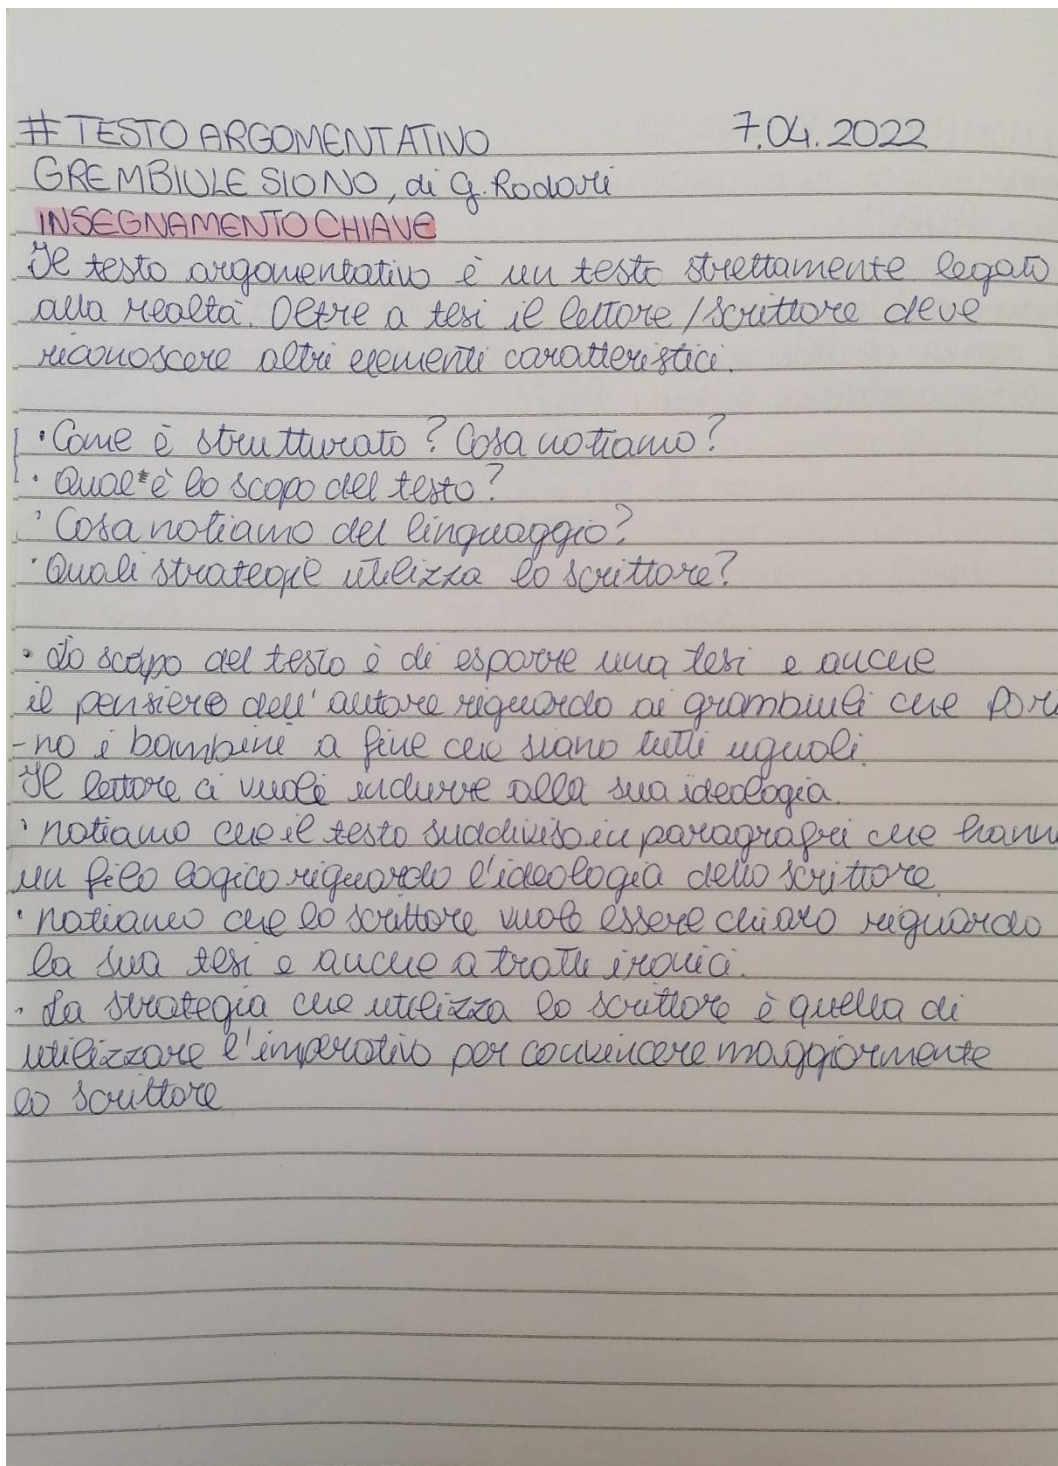 # TESTO ARGOMENTATIVO 7.04.2022
GREMBIULE SI O NO, di G. Rodari
INSEGNAMENTO CHIAVE
Il testo argomentativo è un testo strettamente legato
alla realtà. Oltre a tesi il lettore/scrittore deve
riconoscere altri elementi caratteristici.
· Come è strutturato? Cosa notiamo?
· Qual è lo scopo del testo?
· Cosa notiamo del linguaggio?
· Quali strategie utilizza lo scrittore?
· Lo scopo del testo è di esporre una tesi e anche
il pensiero dell'autore riguardo ai grambiuli che por
-no i bambini a fine che siano tutti uguali.
Il lettore ci vuole indurre alla sua ideologia.
· notiamo che il testo suddiviso in paragrafri che hann
un filo logico riguardo l'ideologia dello scrittore
· notiamo che lo scrittore vuole essere chiaro riguardo
la sua tesi e anche a tratti ironici.
· La strategia che utilizza lo scrittore è quella di
utilizzare l'imperativo per convincere maggiormente
lo scrittore